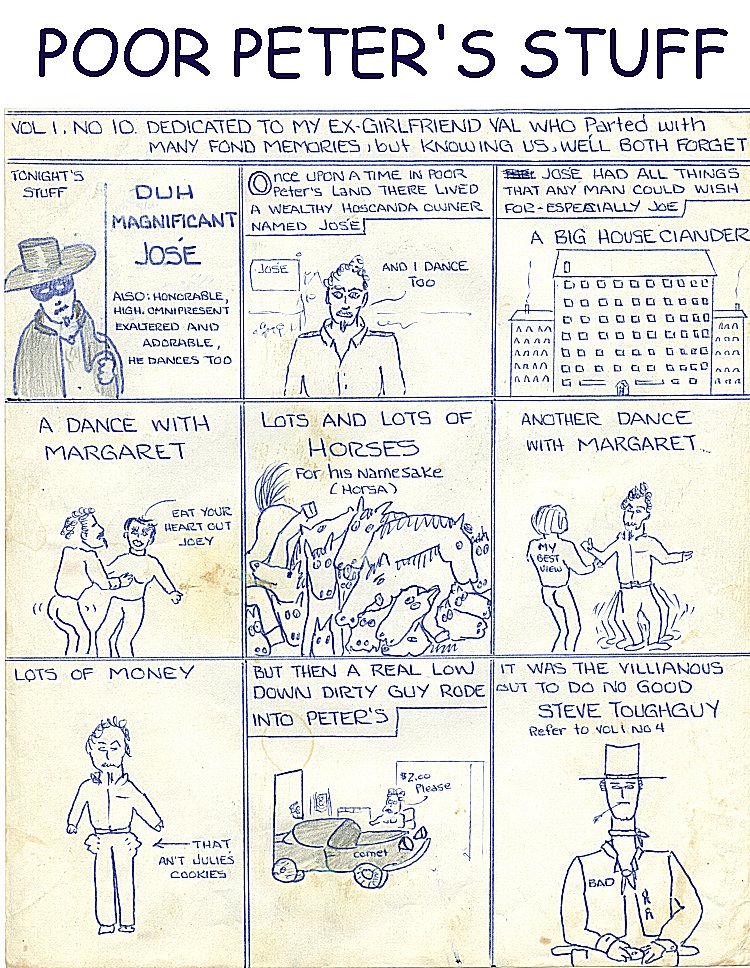 POOR PETER'S STUFF
VOL 1. NO 10. DEDICATED TO MY EX-GIRLFRIEND VAL WHO Parted with
MANY FOND MEMORIES, but KNOWING US, WE'LL BOTH FORGET
TONIGHT'S
STUFF
DUH
MAGNIFICANT
JOSÉ
ALSO: HONORABLE,
HIGH, OMNIPRESENT
EXALTERED AND
ADORABLE,
HE DANCES TOO
ONCE UPON A TIME IN POOR
Peter's LAND THERE LIVED
A WEALTHY HOSCANDA OWNER
NAMED JOSÉ
JOSE
AND I DANCE
TOO
JOSÉ HAD ALL THINGS
THAT ANY MAN COULD WISH
FOR-ESPECIALLY JOE
A BIG HOUSECIANDER
A DANCE WITH
MARGARET
EAT YOUR
HEART OUT
JOEY
LOTS AND LOTS OF
HORSES
For his NAMESAKE
(HORSA)
ANOTHER DANCE
WITH MARGARET
MY
BEST
VIEW
LOTS OF MONEY
THAT
AN'T JULIE'S
COOKIES
BUT THEN A REAL LOW
DOWN DIRTY GUY RODE
INTO PETER'S
$2.00
Please
comet
IT WAS THE VILLIANOUS
OUT TO DO NO GOOD
STEVE TOUGHGUY
Refer to VOL 1. NO 4
BAD